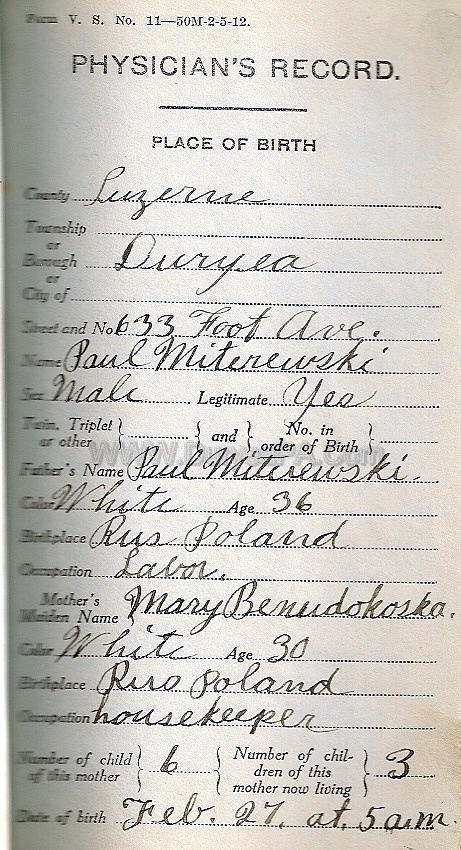 Form V. S. No. 11—50M-2-5-12.
PHYSICIAN'S RECORD.
PLACE OF BIRTH
County Luzerne
Township
or
Borough Duryea
or
City of
Street and No 633 Foot Ave.
Name Paul Miterewski
Sex Male Legitimate Yes
Twin, Triplet or other } { and } { No. in order of Birth }
Father's Name Paul Miterewski.
Color White Age 36
Birthplace Rus Poland
Occupation Labor.
Mother's Maiden Name } Mary Benudokoska.
Color White Age 30
Birthplace Rus Poland
Occupation housekeeper
Number of child of this mother } 6 { Number of chil-dren of this mother now living } 3
Date of birth Feb. 27. at. 5 a.m.